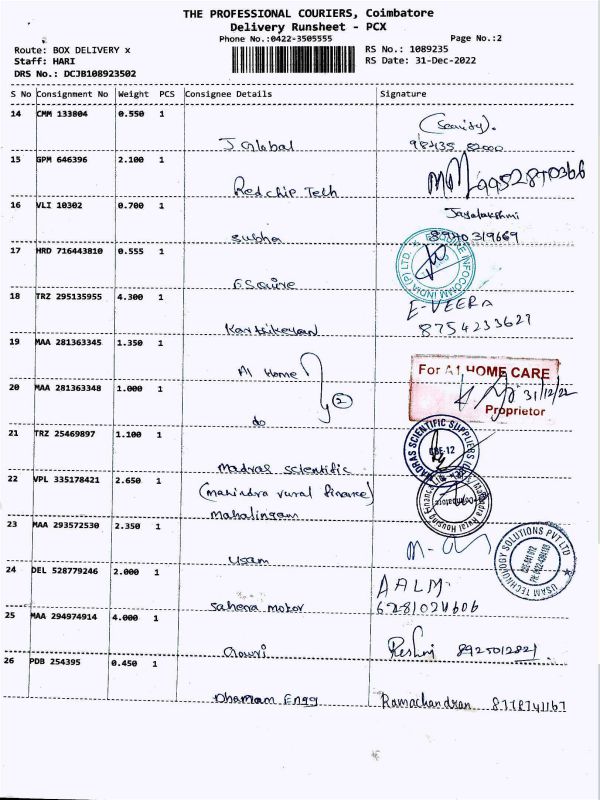 THE PROFESSIONAL COURIERS, Coimbatore
Delivery Runsheet - PCX
Phone No.:0422-3505555
Page No.:2
Route: BOX DELIVERY x
RS No.: 1089235
Staff: HARI
RS Date: 31-Dec-2022
DRS No.: DCJB108923502
S No Consignment No Weight PCS Consignee Details Signature
14 CMM 133804 0.550 1
(Security).
J Global 98435 82000
15 GPM 646396 2.100 1
Redchip Tech
16 VLI 10302 0.700 1
Jayalakshmi
Subha 8940319669
17 HRD 716443810 0.555 1
ESQUIRE INFOCOMM INDIA (P) LTD.
Esquire
18 TRZ 295135955 4.300 1
E-VEERA
Karthikeyan 8754233627
19 MAA 281363345 1.350 1
A1 Home
For A1 HOME CARE
20 MAA 281363348 1.000 1
2
31/12/22
Proprietor
do
21 TRZ 25469897 1.100 1
MADRAS SCIENTIFIC SUPPLIERS
CBE-12
Madras Scientific
22 VPL 335178421 2.650 1
(Mahindra rural finance)
Mahindra Rural Housing Finance
Mahalingam
23 MAA 293572530 2.350 1
USAM TECHNOLOGY SOLUTIONS PVT LTD
Usam
24 DEL 528779246 2.000 1
AALM
Sahena Motor
25 MAA 294974914 4.000 1
Gowri Reshmi 8925012821
26 PDB 254395 0.450 1
Dharnam Engg Ramachandran 8778741167